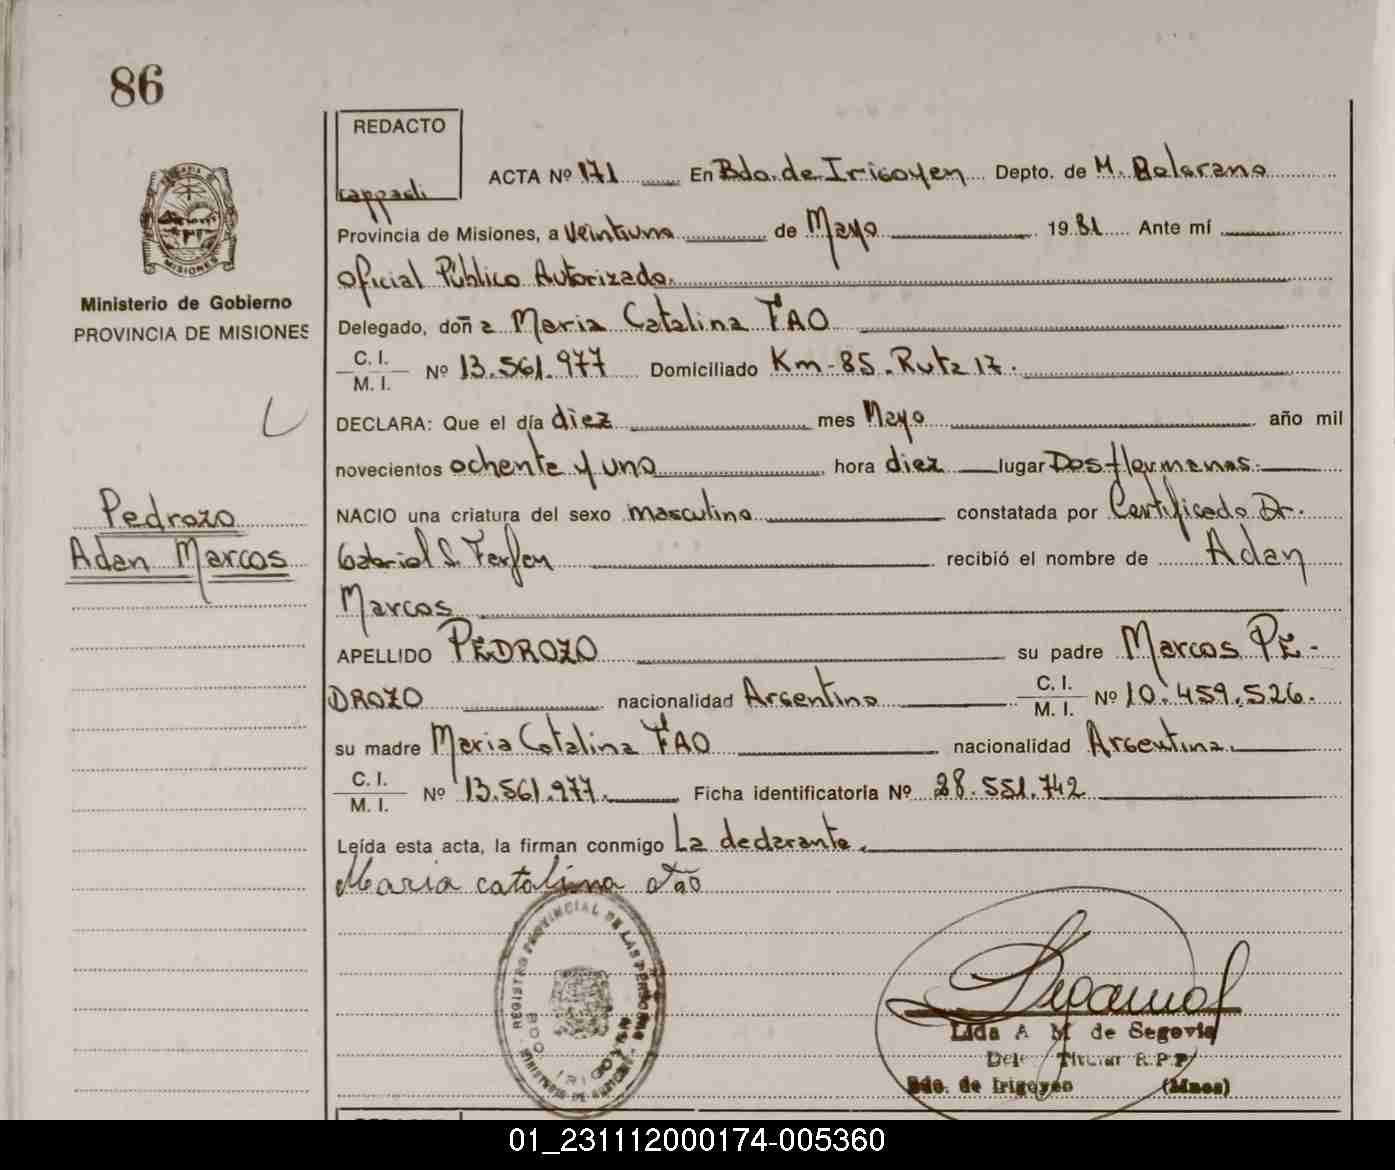 86
REDACTO
cappadi
ACTA Nº 171 En Bdo. de Irigoyen Depto. de M. Belgrano
Provincia de Misiones, a Veintiuno de Mayo 1981 Ante mí
Oficial Público Autorizado.
Delegado, doña Maria Catalina FAO
C. I.
M. I. Nº 13.561.977 Domiciliado Km-85. Ruta 17.
DECLARA: Que el día diez mes Mayo año mil
novecientos ochenta y uno hora diez lugar Dos Hermanas.
NACIO una criatura del sexo masculino constatada por Certificado Dr.
Gabriel S. recibió el nombre de Adan
Marcos
APELLIDO PEDROZO su padre Marcos PE-
DROZO nacionalidad Argentino C. I.
M. I. Nº 10.459.526.
su madre Maria Catalina FAO nacionalidad Argentina.
C. I.
M. I. Nº 13.561.977. Ficha identificatoria Nº 28.551.742
Leída esta acta, la firman conmigo La declarante.
Maria catalina
MISIONES
Ministerio de Gobierno
PROVINCIA DE MISIONES
Pedrozo
Adan Marcos
REGISTRO PROVINCIAL DE LAS PERSONAS
Lida A M de Segovia
Del Titular R.P.P
Bdo. de Irigoyen (Mnes)
01_231112000174-005360